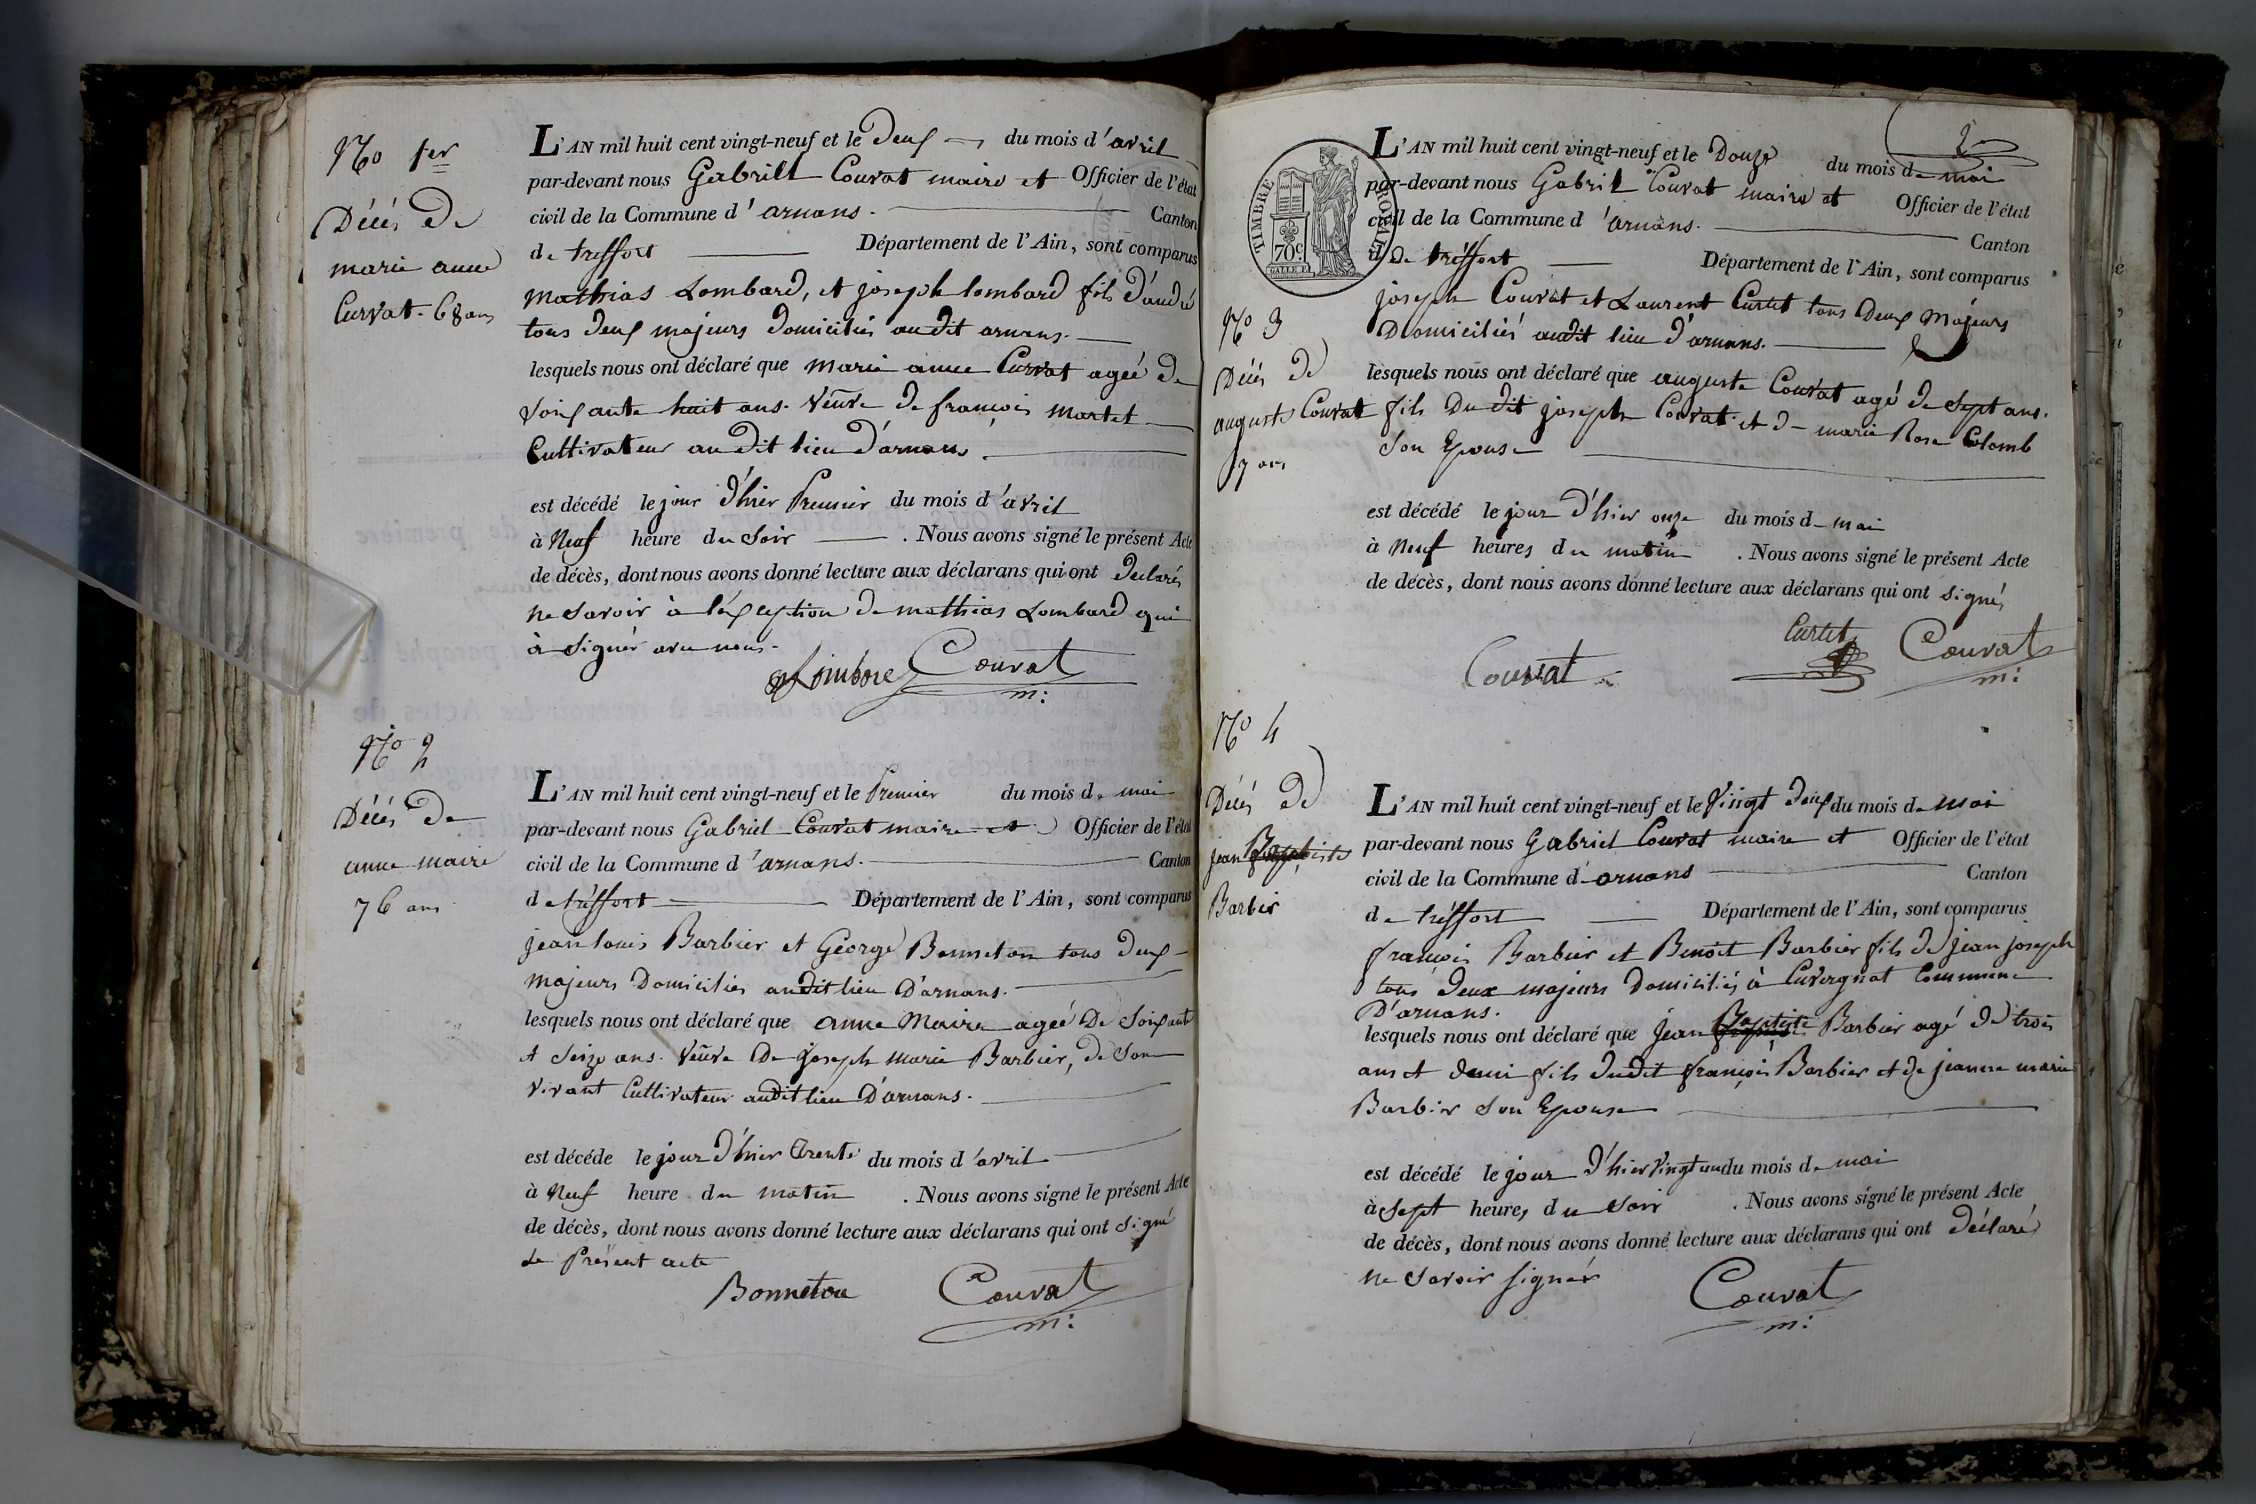 No 1er
Décès de
marie anne
Curvat. 68 ans
L'AN mil huit cent vingt-neuf et le deux du mois d'avril
par-devant nous Gabriell Couvat maire et Officier de l'état
civil de la Commune d'arnans. Canton
de treffort Département de l'Ain, sont comparus
Mathias Lombard, et joseph lombard fils d'andré
tous deux majeurs domiciliés audit arnans.
lesquels nous ont déclaré que marie anne Curvat ageé de
soixante huit ans. Veuve de francois Martet
Cultivateur audit lieu d'arnans.
est décédé le jour d'hier Premier du mois d'avril
à Neuf heure du Soir . Nous avons signé le présent Acte
de décès, dont nous avons donné lecture aux déclarans qui ont declarés
ne Savoir à l'éxception de mathias Lombard qui
à Signér avec nous.
Couvat
m:
No 2
Décès de
anne maire
76 ans
L'AN mil huit cent vingt-neuf et le Premier du mois de mai
par-devant nous Gabriel Couvat maire et Officier de l'état
civil de la Commune d'arnans. Canton
de tréffort Département de l'Ain, sont comparus
jean louis Barbier et George Bonneton tous deux
majeurs Domiciliés audit lieu D'arnans.
lesquels nous ont déclaré que anne Maire ageé De Soixante
et Seize ans. Veuve De joseph marie Barbier, de Son
Vivant Cultivateur audit lieu D'arnans.
est décéde le jour d'hier Trente du mois d'avril
à Neuf heure du matin . Nous avons signé le présent Acte
de décès, dont nous avons donné lecture aux déclarans qui ont Signé
Le Présent acte
Bonneton Couvat
m:
2
TIMBRE ROYAL
70c.
L'AN mil huit cent vingt-neuf et le Douze du mois de mai
par-devant nous Gabriel Couvat maire et Officier de l'état
civil de la Commune d'arnans. Canton
d de tréffort Département de l'Ain, sont comparus
joseph Couvat et Laurent Curtet tous Deux Majeurs
Domiciliés audit lieu d'arnans.
No 3
Décès de
auguste Couvat
7 ans
lesquels nous ont déclaré que auguste Couvat agé de Sept ans.
fils Du dit joseph Couvat et de marie Rose Colomb
Son Epouse
est décédé le jour d'hier onze du mois de mai
à Neuf heures du matin . Nous avons signé le présent Acte
de décès, dont nous avons donné lecture aux déclarans qui ont signés
Couvat Curtet Couvat
m:
No 4
Décès de
jean Baptiste
Barbier
L'AN mil huit cent vingt-neuf et le Vingt deux du mois de Mai
par-devant nous Gabriel Couvat maire et Officier de l'état
civil de la Commune d'arnans Canton
de tréffort Département de l'Ain, sont comparus
françois Barbier et Benoit Barbier fils de jean joseph
tous deux majeurs Domiciliés à Cuvergnat Commune
D'arnans.
lesquels nous ont déclaré que jean Baptiste Barbier agé de trois
ans et demi fils dudit françois Barbier et de jeanne marie
Barbier Son Epouse
est décédé le jour d'hier Vingt un du mois de mai
à Sept heures du Soir . Nous avons signé le présent Acte
de décès, dont nous avons donné lecture aux déclarans qui ont déclaré
ne Savoir signér
Couvat
m: